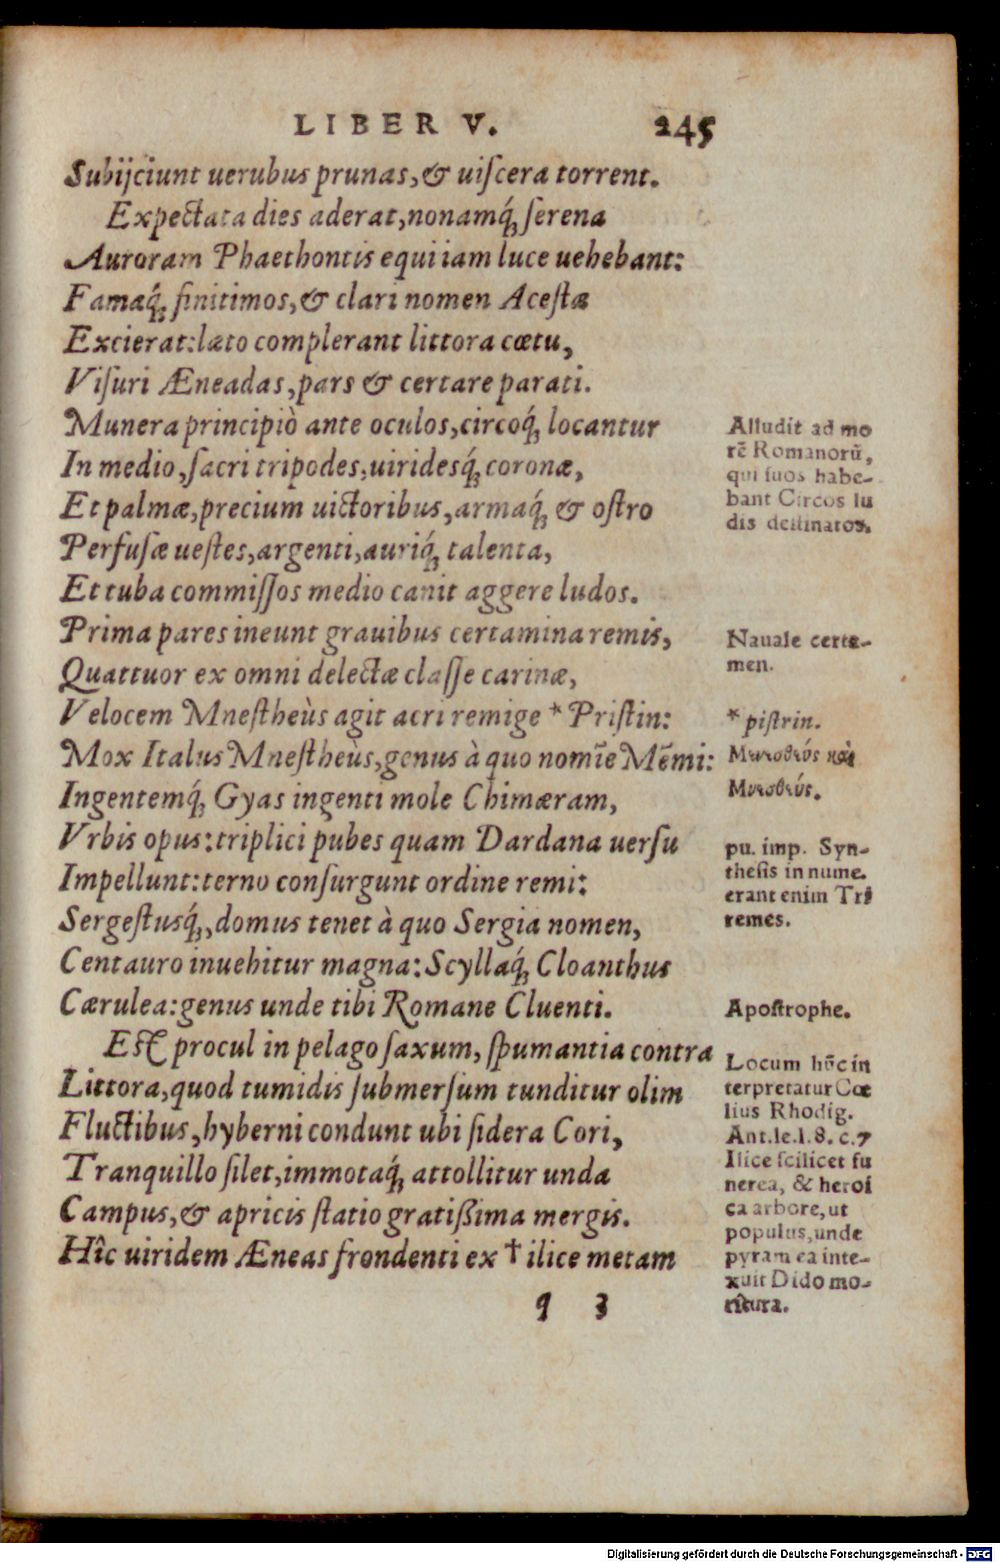 LIBER V. 245
Subijciunt uerubus prunas, & uiſcera torrent.
Expectata dies aderat, nonamq́; ſerena
Auroram Phaethontis equi iam luce uehebant:
Famaq́; finitimos, & clari nomen Aceſtæ
Excierat: læto complerant littora cœtu,
Viſuri Æneadas, pars & certare parati.
Munera principiò ante oculos, circoq́; locantur
In medio, ſacri tripodes, uiridesq́; coronæ,
Et palmæ, precium uictoribus, armaq́; & oſtro
Perfuſæ ueſtes, argenti, auriq́; talenta,
Et tuba commiſſos medio canit aggere ludos.
Prima pares ineunt grauibus certamina remis,
Quattuor ex omni delectæ claſſe carinæ,
Velocem Mneſtheùs agit acri remige * Priſtin:
Mox Italus Mneſtheùs, genus à quo nomīe Mēmi:
Ingentemq́; Gyas ingenti mole Chimæram,
Vrbis opus: triplici pubes quam Dardana uerſu
Impellunt: terno conſurgunt ordine remi:
Sergeſtusq́;, domus tenet à quo Sergia nomen,
Centauro inuehitur magna: Scyllaq́; Cloanthus
Cærulea: genus unde tibi Romane Cluenti.
Eſt procul in pelago ſaxum, ſpumantia contra
Littora, quod tumidis ſubmerſum tunditur olim
Fluctibus, hyberni condunt ubi ſidera Cori,
Tranquillo ſilet, immotaq́; attollitur unda
Campus, & apricis ſtatio gratißima mergis.
Hîc uiridem Æneas frondenti ex † ilice metam
q 3
Alludit ad mo
rē Romanorū,
qui ſuos habe-
bant Circos lu
dis deſtinatos.
Nauale certa-
men.
* piſtrin.
καὶ
pu. imp. Syn-
theſis in nume.
erant enim Tri
remes.
Apoſtrophe.
Locum hūc in
terpretatur Cœ
lius Rhodig.
Ant. le. l. 8. c. 7
Ilice ſcilicet fu
nerea, & heroi
ca arbore, ut
populus, unde
pyram ea inte-
xuit Dido mo-
ritura.
Digitalisierung gefördert durch die Deutsche Forschungsgemeinschaft - DFG